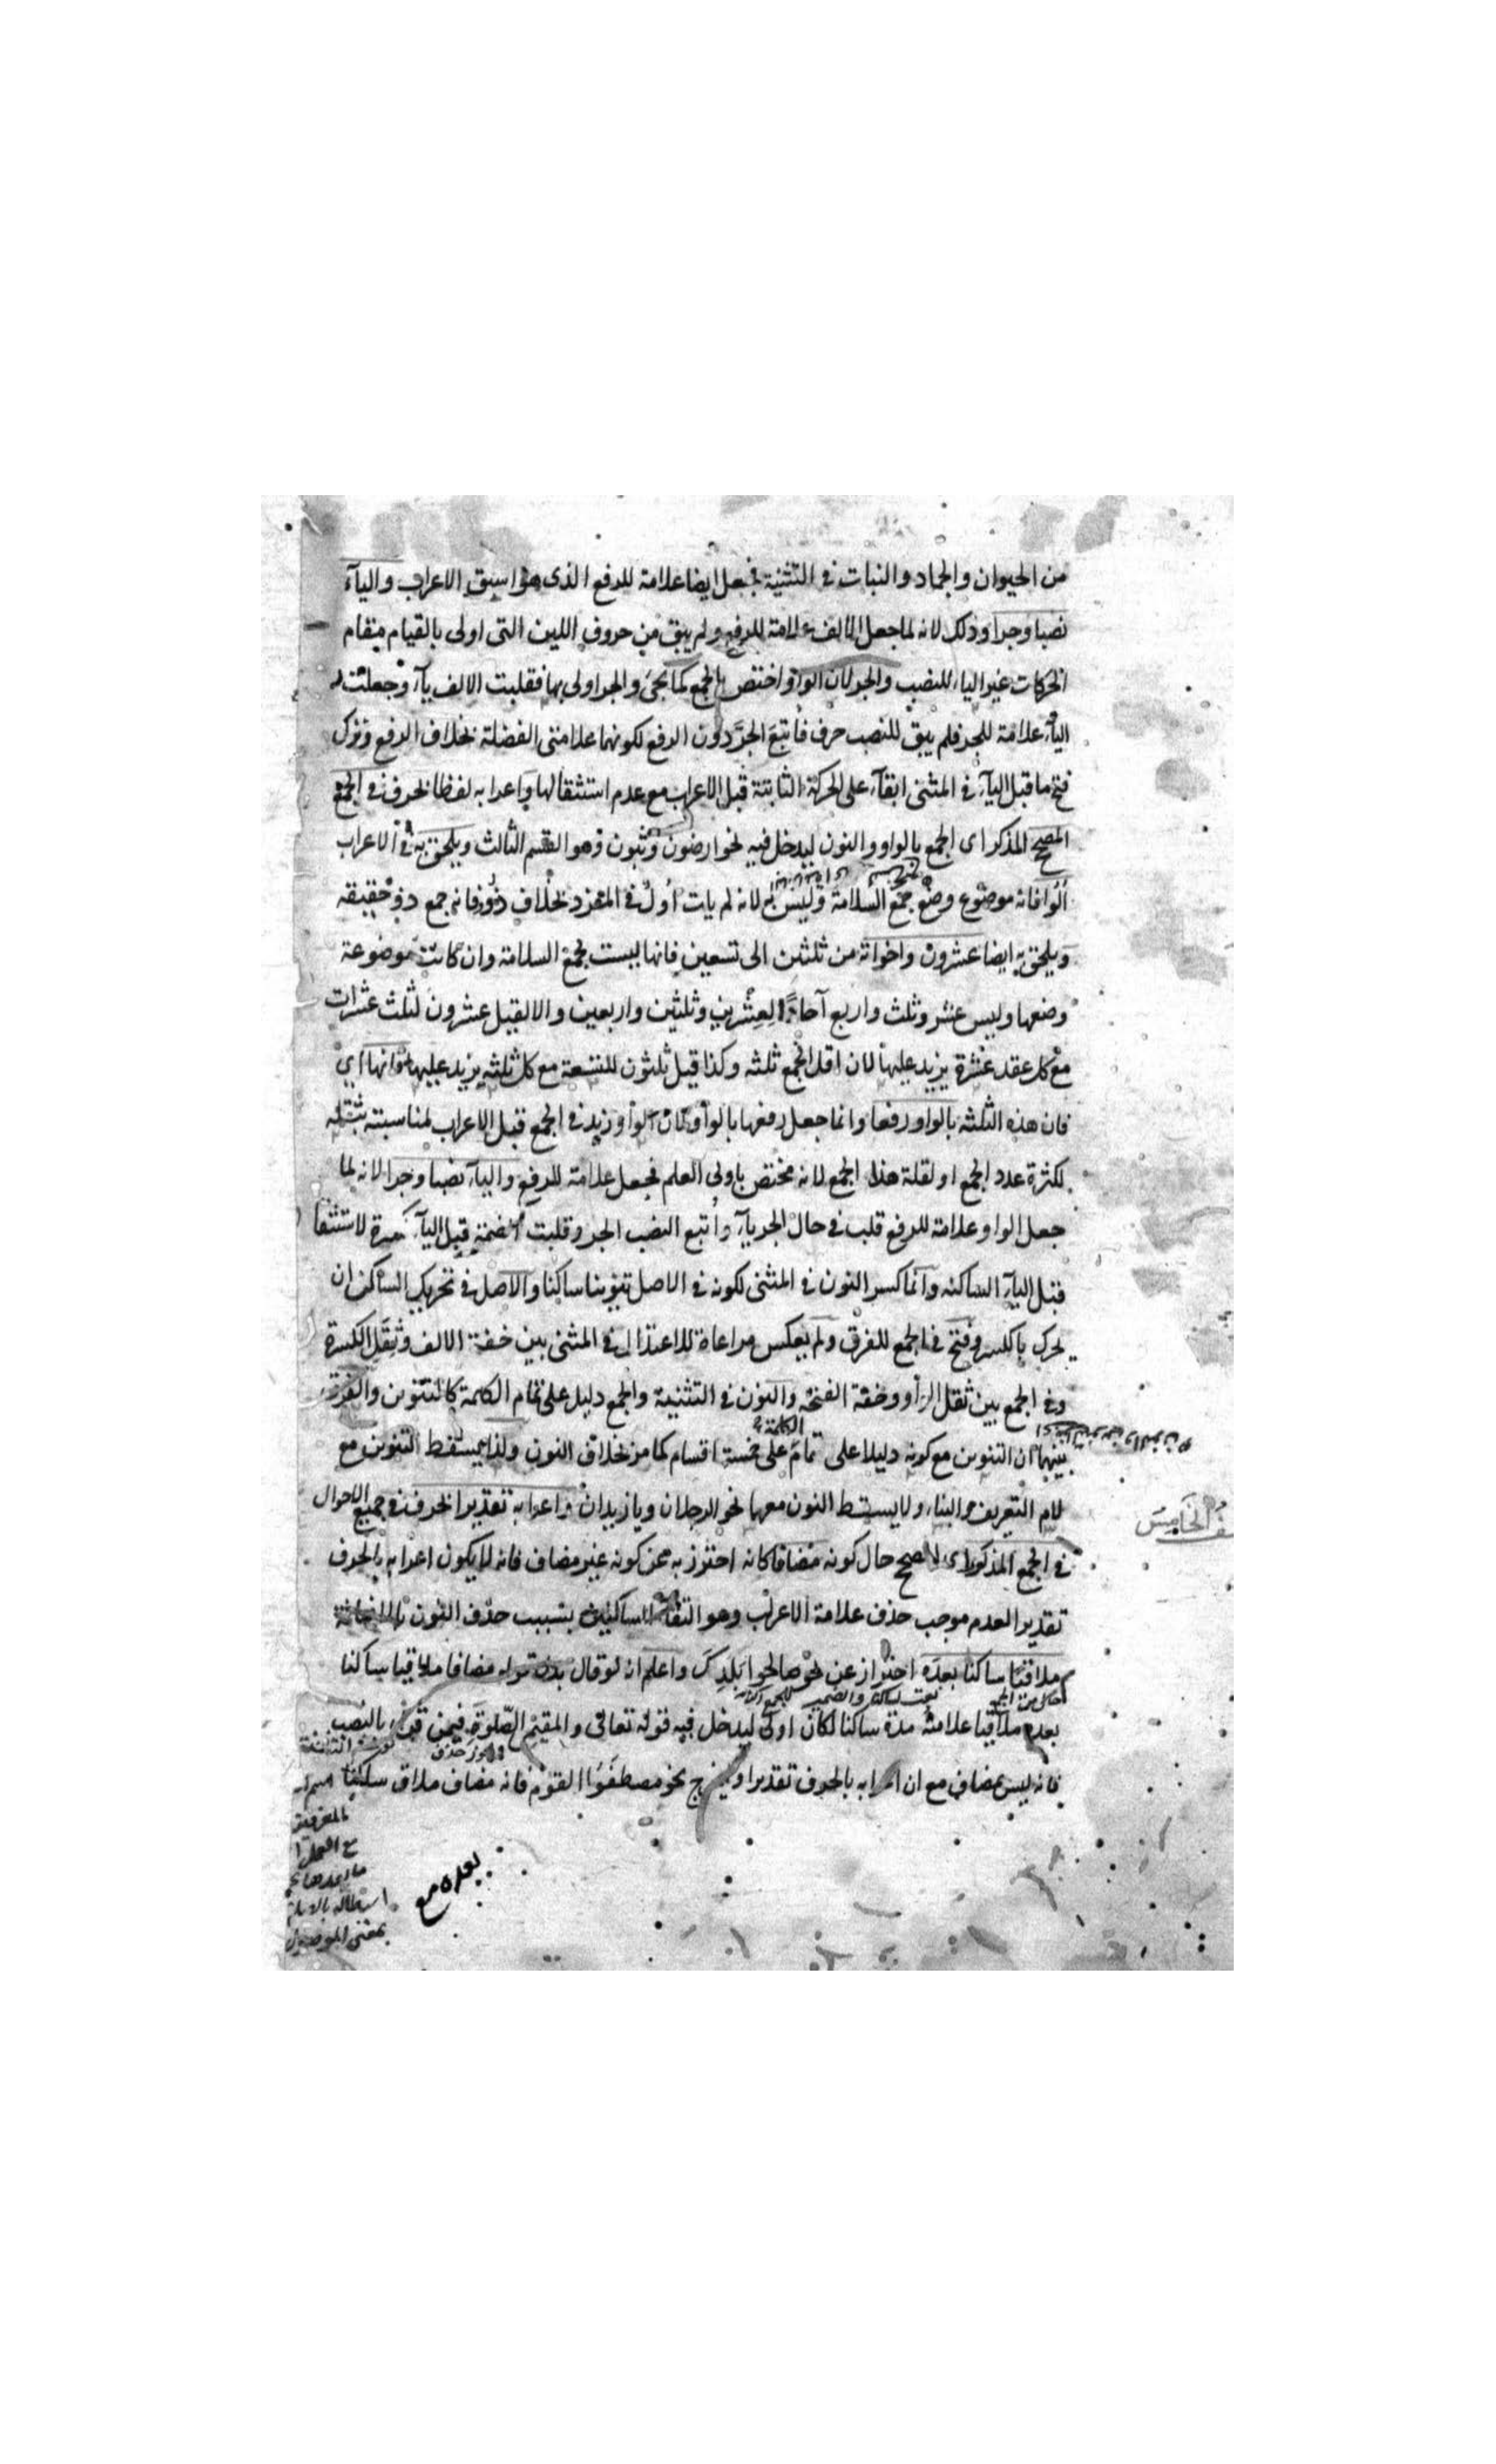 من الحيوان والجماد والنبات في التثنية فجعل ايضا علامة للرفع الذي هو اسبق الاعراب والياء
نصبا وجرا وذلك لانه لما جعل الالف علامة للرفع ولم يبق من حروف اللين التي اولى بالقيام مقام
الحركات غير الياء للنصب والجر لان الواو اختص بالجمع كما يجئ والجر اولى بها فقلبت الالف ياء وجعلت
الياء علامة للجر فلم يبق للنصب حرف فاتبع الجر دون الرفع لكونهما علامتي الفضلة بخلاف الرفع وترك
فتح ما قبل الياء في المثنى ابقاء على الحركة الثابتة قبل الاعراب مع عدم استثقالها واعرابه لفظا بالحرف في الجمع
المصحح المذكر اى الجمع بالواو والنون ليدخل فيه نحو ارضون وثبون وهو القسم الثالث ويلحق به في الاعراب
الوا فانه موضوع وضع جمع السلامة وليس به لانه لم يات اول في المفرد بخلاف ذوو فانه جمع ذو حقيقة
ويلحق به ايضا عشرون واخواته من ثلثين الى تسعين فانها ليست بجمع السلامة وان كانت موضوعة
وضعها وليس عشر وثلث واربع آحادا لعشرين وثلثين واربعين والا لقيل عشرون لثلث عشرات
مع كل عقد عشرة يزيد عليها لان اقل الجمع ثلثه وكذا قيل ثلثون للتسعة مع كل ثلثه يزيد عليها اى
فان هذه الثلثه بالواو رفعا وانما جعل رفعها بالواو لان الواو زيد في الجمع قبل الاعراب لمناسبته بثقله
لكثرة عدد الجمع او لقلة هذا الجمع لانه مختص باولى العلم فجعل علامة للرفع والياء نصبا وجرا لانه لما
جعل الواو علامة للرفع قلب في حال الجر ياء واتبع النصب الجر وقلبت الضمة قبل الياء كسرة لاستثقا
قبل الياء الساكنه وانما كسر النون في المثنى لكونه في الاصل تنوينا ساكنا والاصل في تحريك الساكن ان
يحرك بالكسر وفتح في الجمع للفرق ولم يعكس مراعاة للاعتدال في المثنى بين خفة الالف وثقل الكسرة
وفي الجمع بين ثقل الواو وخفة الفتحة والنون في التثنية والجمع دليل على تمام الكلمة كالتنوين والفرق
بينهما ان التنوين مع كونه دليلا على تمام الكلمة على خمسة اقسام كما مر بخلاف النون ولذا يسقط التنوين مع
لام التعريف والبناء ولا يسقط النون معها نحو الرجلان ويا زيدان واعرابه تقديرا بالحرف في جميع الاحوال
ـف الخامس
في الجمع المذكور اى المصحح حال كونه مضافا كانه احترز به عن كونه غير مضاف فانه لا يكون اعرابه بالحرف
تقديرا لعدم موجب حذف علامة الاعراب وهو التقاء الساكنين بسبب حذف النون بالاضافة
ملاقيا ساكنا بعده احتراز عن نحو صالحوا بلدك واعلم انه لو قال بدل قوله مضافا ملاقيا ساكنا
بعده ملاقيا علامته مدة ساكنا لكان اولى ليدخل فيه قوله تعالى والمقيم الصلوة فيمن قرء بالنصب
فانه ليس بمضاف مع ان اعرابه بالحرف تقديرا ويخرج نحو مصطفوا القوم فانه مضاف ملاق ساكنا
بعده مع